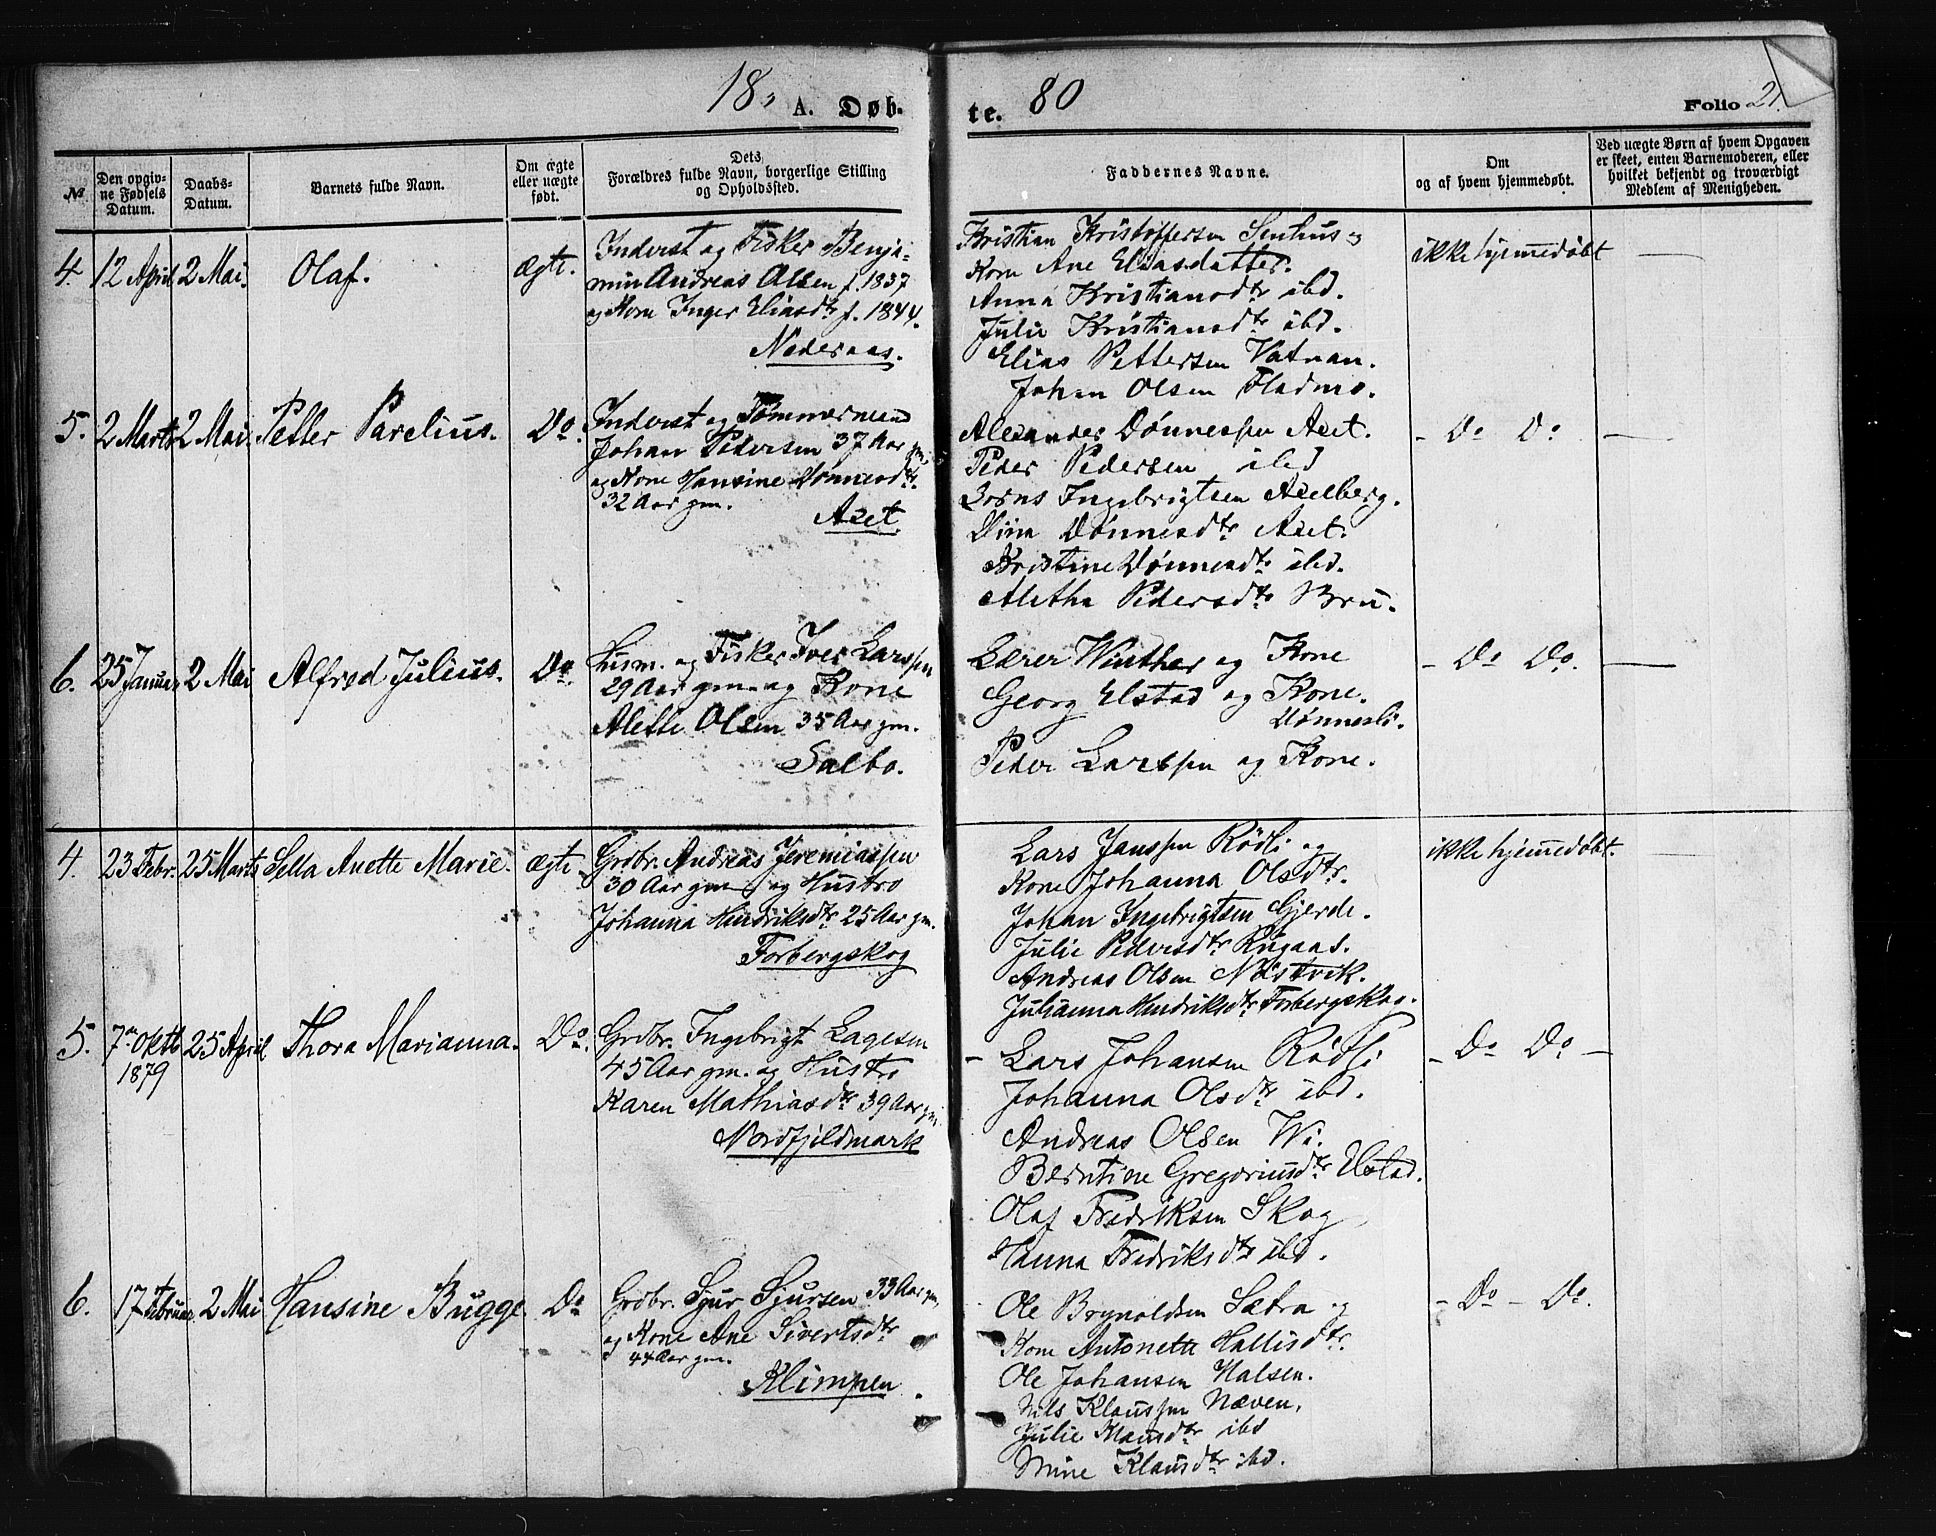 18 A. Døb-te. 80 Folio 21.
№ Den opgivne Fødsels Datum. Daabs-Datum. Barnets fulde Navn. Om ægte eller uægte født. Dets Forældres fulde Navn, borgerlige Stilling og Opholdssted. Faddernes Navne. Om og af hvem hjemmedøbt. Ved uægte Børn af hvem Opgaven er skeet, enten Barnemoderen, eller hvilket bekjendt og troværdigt Medlem af Menigheden.
4. 12 April 2 Mai. Olaf. ægte.
Inderst og Fisker Benja-
min Andreas Olsen f. 1837
og Kone Inger Eliasdtr f. 1844.
Nederaas.
Kristian Kristoffersen Senhus og
Kone Ane Eliasdatter.
Anna Kristiansdtr ibd.
Julie Kristiansdtr ibd.
Elias Pettersen Vatnan.
Johan Olsen Fladmo.
ikke hjemmedøbt
5. 2 Marts 2 Mai. Petter Parelius. Do.
Inderst og Tømmermand
Johan Pedersen 37 Aar gm.
og Kone Hansine Dønnesdtr.
32 Aar gm.
Axet
Alexander Dønnessen Axet.
Peder Pedersen ibd
Lorns Ingebrigtsen Axelberg.
Dina Dønnesdtr Axet.
Kristine Dønnesdtr ibd.
Aletha Pedersdtr Bru.
- Do Do.
6. 25 Januar 2 Mai Alfred Julius. Do.
Husm. og Fisker Iver Larssen
29 Aar gm. og Kone
Alette Olsen 35 Aar gm.
Salbo.
Lærer Winther og Kone
Georg Elstad og Kone.
Dønnesli.
Peder Larssen og Kone.
- Do Do.
4. 23 Febr. 25 Marts Sella Anette Marie. ægte
Grdbr. Andreas Jeremiassen
30 Aar gm. og Hustro
Johanna Hendriksdtr 25 Aar gm.
Forbergskog
Lars Janssen Rødli og
Kone Johanna Olsdtr.
Johan Ingebrigtsen Gjerde.
Julie Pedersdtr Rugaas.
Andreas Olsen Nøstvik.
Julianna Hendriksdtr Forbergskog.
ikke hjemmedøbt.
5. 7de Oktb 25 April Thora Marianna. Do.
1879
Grdbr. Ingebrigt Lagesen
45 Aar gm. og Hustro
Karen Mathiasdtr 39 Aar gm.
Nordfjeldmark
- Lars Johansen Rødli
Johanna Olsdtr ibd.
Andreas Olsen Wi.
Berntine Gregoriusdtr Elstad.
Olaf Fredriksen Skog
Hanna Fredriksdtr ibd.
- Do Do -
6. 17 Februar 2 Mai Hansine Bugge Do
Grdbr. Sjur Sjursen 33 Aar gm,
og Kone Ane Sivertsdtr
44 Aar gm.
Klimpen.
Ole Brynoldsen Sætra og
Kone Antonette Hallisdtr.
Ole Johansen Halsen.
Nils Klaussen Næven,
Julie Hansdtr ibd
Mine Klausdtr ibd.
- Do - Do.